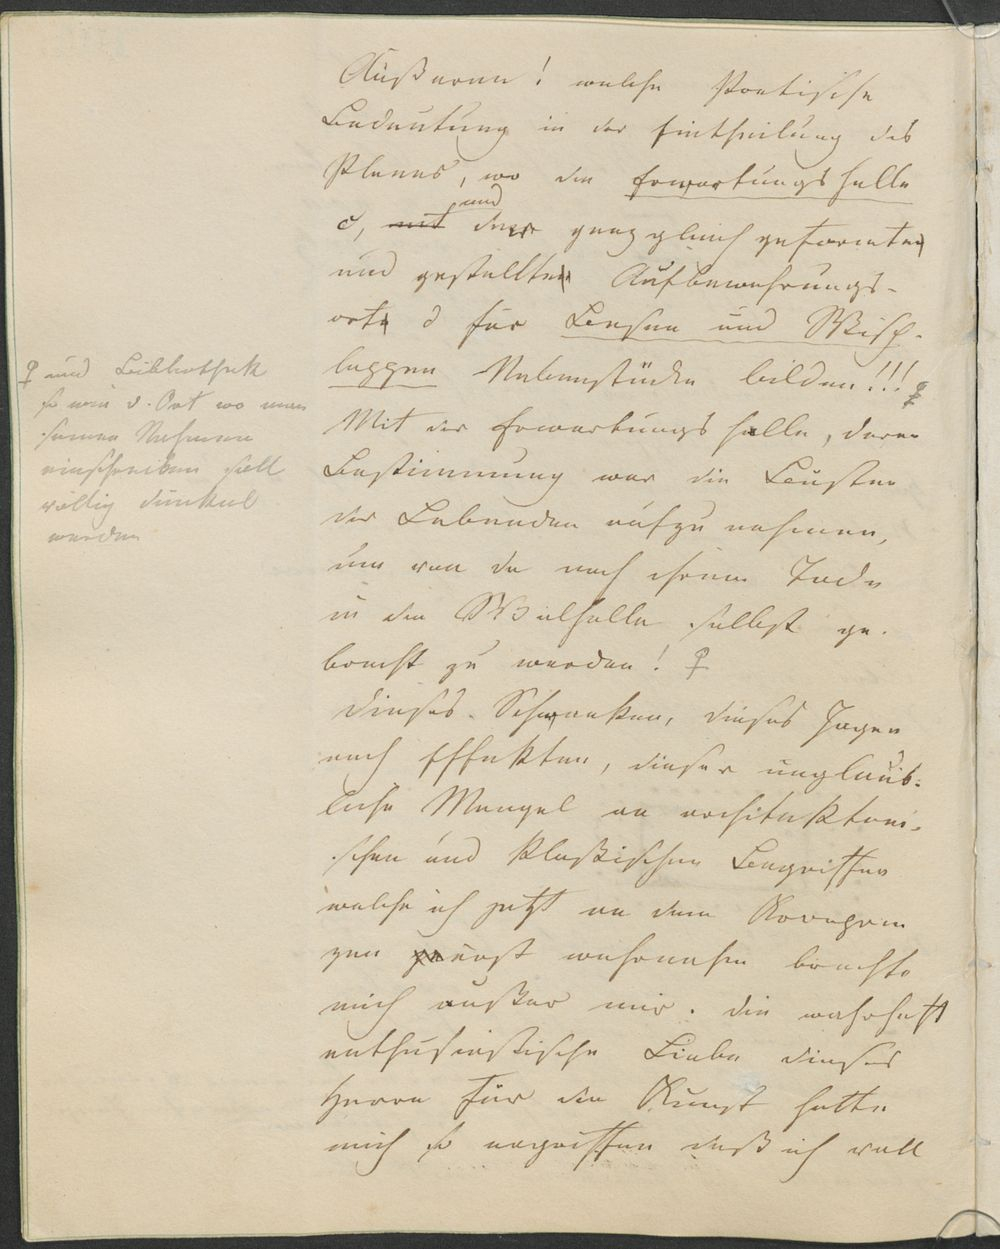 Außerum! welche Poetische
Bedeutung in der Eintheilung des
Planes, wo die Erwartungshalle
c, mit und der ganz gleich geformte
und gestellte Aufbewahrungs-
ort d für Besen und Wisch-
lappen Nebenstücke bilden!!!
Mit der Erwartungshalle, deren
Bestimmung war die Büsten
der Lebenden aufzunehmen,
um von da nach ihrem Tode
in die Walhalla selbst ge-
bracht zu werden!
dieses Schwanken, dieses Jagen
nach Effekten, dieser unglaub-
liche Mangel an architektoni-
schen und klaßischen Begriffen
welche ich jetzt an dem Kronprin
zen zuerst wahrnahm brachte
mich außer mir. die wahrhaft
enthusiastische Liebe dieses
Herrn für die Kunst hatte
mich so ergriffen daß ich voll
und Bibliothek
so wie d. Ort wo man
seinen Nahmen
einschreiben soll
völlig dunkel
werden